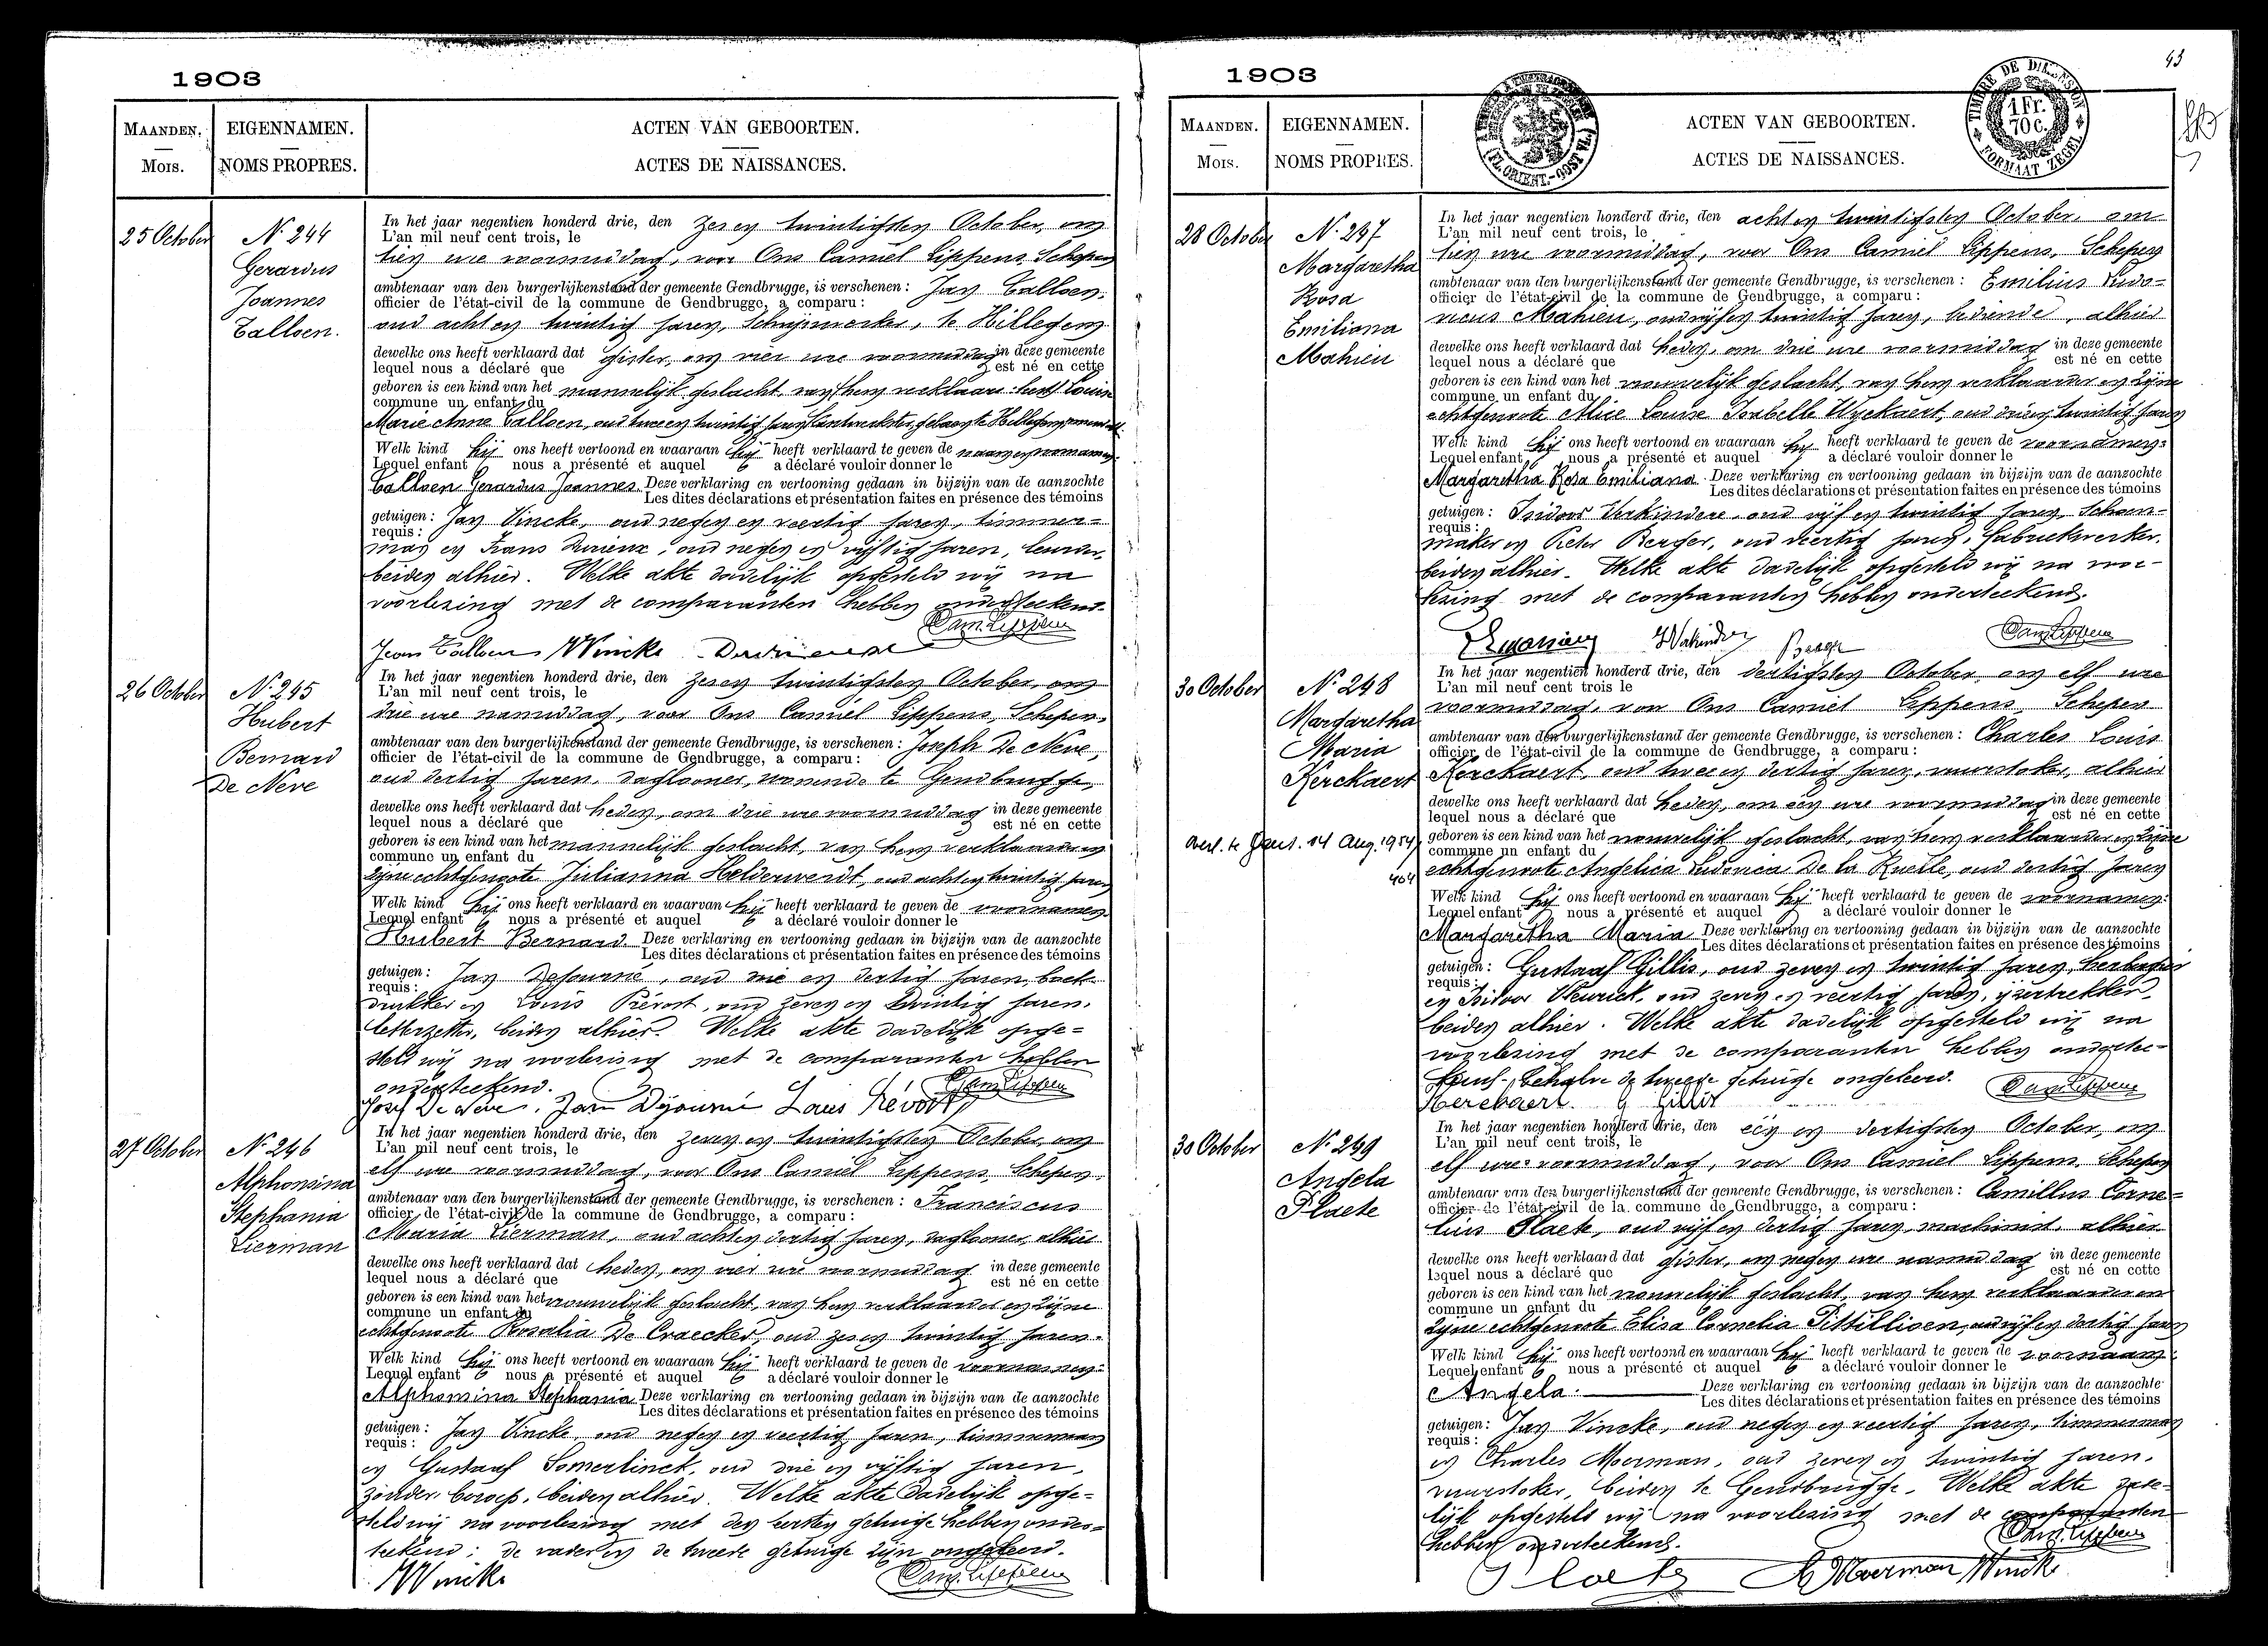 1903
MAANDEN. EIGENNAMEN. ACTEN VAN GEBOORTEN.
Mois. NOMS PROPRES. ACTES DE NAISSANCES.
25 October
N.º 244
Gerardus
Joannes
Calloen.
In het jaar negentien honderd drie, den zes en twintigsten October, om
L'an mil neuf cent trois, le
tien ure voormiddag, voor Ons Camiel Lippens, Schepen
ambtenaar van den burgerlijkenstand der gemeente Gendbrugge, is verschenen : Jan Calloen,
officier de l'état-civil de la commune de Gendbrugge, a comparu :
oud acht en twintig jaren, Schrijnwerker, te Hillegem
dewelke ons heeft verklaard dat gister, om vier ure voormiddag in deze gemeente
lequel nous a déclaré que est né en cette
geboren is een kind van het mannelijk geslacht, van hem verklaarder
commune un enfant du
Marie Anna Calloen, oud twee en twintig jaren, kantwerkster, geboren te Hillegem
Welk kind hij ons heeft vertoond en waaraan hij heeft verklaard te geven de naam en voornamen
Lequel enfant nous a présenté et auquel a déclaré vouloir donner le
Calloen Gerardus Joannes. Deze verklaring en vertooning gedaan in bijzijn van de aanzochte
Les dites déclarations et présentation faites en présence des témoins
getuigen : Jan Vincke, oud negen en veertig jaren, timmer=
requis :
man en Frans, oud negen en vijftig jaren,
beiden alhier. Welke akte dadelijk opgesteld wij na
voorlezing met de comparanten hebben onderteekend.
Cam. Lippens
Jean Calloen JVincke
26 October
N.º 245
Hubert
Bernard
De Neve
In het jaar negentien honderd drie, den zes en twintigsten October, om
L'an mil neuf cent trois, le
drie ure namiddag, voor Ons Camiel Lippens, Schepen,
ambtenaar van den burgerlijkenstand der gemeente Gendbrugge, is verschenen : Joseph De Neve,
officier de l'état-civil de la commune de Gendbrugge, a comparu :
oud dertig jaren, daglooner, wonende te Gendbrugge,
dewelke ons heeft verklaard dat heden, om drie ure voormiddag in deze gemeente
lequel nous a déclaré que est né en cette
geboren is een kind van het mannelijk geslacht, van hem verklaarder en
commune un enfant du
zijne echtgenoote Julianna Helderweirdt, oud acht en twintig jaren
Welk kind hij ons heeft verklaard en waarvan hij heeft verklaard te geven de voornamen
Lequel enfant nous a présenté et auquel a déclaré vouloir donner le
Hubert Bernard Deze verklaring en vertooning gedaan in bijzijn van de aanzochte
Les dites déclarations et présentation faites en présence des témoins
getuigen : Jan Dejourné, oud drie en dertig jaren, boek-
requis :
drukker en Louis Prévost, oud zeven en twintig jaren,
letterzetter, beiden alhier. Welke akte dadelijk opge=
steld wij na voorlezing met de comparanten hebben
onderteekend. Cam. Lippens
Josef De Neve. Jan Dejourné Louis Prévost
27 October
N.º 246
Alphonsina
Stephania
Lierman
In het jaar negentien honderd drie, den zeven en twintigsten October, om
L'an mil neuf cent trois, le
elf ure voormiddag, voor Ons Camiel Lippens, Schepen,
ambtenaar van den burgerlijkenstand der gemeente Gendbrugge, is verschenen : Franciscus
officier de l'état-civil de la commune de Gendbrugge, a comparu :
Maria Lierman, oud acht en dertig jaren, daglooner, alhier
dewelke ons heeft verklaard dat heden, om vier ure voormiddag in deze gemeente
lequel nous a déclaré que est né en cette
geboren is een kind van het vrouwelijk geslacht, van hem verklaarder en zijne
commune un enfant du
echtgenoote Rosalia De Craecker, oud zes en twintig jaren.
Welk kind hij ons heeft vertoond en waaraan hij heeft verklaard te geven de voornamen:
Lequel enfant nous a présenté et auquel a déclaré vouloir donner le
Alphonsina Stephania Deze verklaring en vertooning gedaan in bijzijn van de aanzochte
Les dites déclarations et présentation faites en présence des témoins
getuigen : Jan Vincke, oud negen en veertig jaren, timmerman
requis :
en Gustaaf Somerlinck, oud drie en vijftig jaren,
zonder beroep, beiden alhier. Welke akte dadelijk opge=
steld wij na voorlezing met den eersten getuige hebben onder=
teekend; de vader en de tweede getuige zijn ongeleerd.
JVincke Cam. Lippens
1903
43
MAANDEN. EIGENNAMEN. ACTEN VAN GEBOORTEN.
Mois. NOMS PROPRES. ACTES DE NAISSANCES.
TIMBRE DE DIMENSION
1 Fr. 70 c.
FORMAAT ZEGEL
28 October
N.º 247
Margaretha
Rosa
Emiliana
Mahieu
In het jaar negentien honderd drie, den acht en twintigsten October, om
L'an mil neuf cent trois, le
tien ure voormiddag, voor Ons Camiel Lippens, Schepen
ambtenaar van den burgerlijkenstand der gemeente Gendbrugge, is verschenen : Emilius Ludo=
officier de l'état-civil de la commune de Gendbrugge, a comparu :
vicus Mahieu, oud vijf en twintig jaren, bediende, alhier
dewelke ons heeft verklaard dat heden, om drie ure voormiddag in deze gemeente
lequel nous a déclaré que est né en cette
geboren is een kind van het vrouwelijk geslacht, van hem verklaarder en zijne
commune un enfant du
echtgenoote Alice Louise Isabelle Wyckaert, oud drie en twintig jaren
Welk kind hij ons heeft vertoond en waaraan hij heeft verklaard te geven de voornamen:
Lequel enfant nous a présenté et auquel a déclaré vouloir donner le
Margaretha Rosa Emiliana. Deze verklaring en vertooning gedaan in bijzijn van de aanzochte
Les dites déclarations et présentation faites en présence des témoins
getuigen : Isidoor Verkindere, oud vijf en twintig jaren, Schoen-
requis :
maker en Pieter Berger, oud veertig jaren, fabriekwerker,
beiden alhier. Welke akte dadelijk opgesteld wij na voor-
lezing met de comparanten hebben onderteekend.
Cam. Lippens
30 October
N.º 248
Margaretha
Maria
Kerckaert
Overl. te Gent. 14 Aug. 1954
In het jaar negentien honderd drie, den dertigsten October, om elf ure
L'an mil neuf cent trois le
voormiddag, voor Ons Camiel Lippens, Schepen
ambtenaar van den burgerlijkenstand der gemeente Gendbrugge, is verschenen : Charles Louis
officier de l'état-civil de la commune de Gendbrugge, a comparu :
Kerckaert, oud twee en dertig jaren, vuurstoker, alhier
dewelke ons heeft verklaard dat heden, om een ure voormiddag in deze gemeente
lequel nous a déclaré que est né en cette
geboren is een kind van het vrouwelijk geslacht, van hem verklaarder en zijne
commune un enfant du
echtgenoote Angelica Ludovica De la Ruelle, oud dertig jaren
Welk kind hij ons heeft vertoond en waaraan hij heeft verklaard te geven de voornamen:
Lequel enfant nous a présenté et auquel a déclaré vouloir donner le
Margaretha Maria Deze verklaring en vertooning gedaan in bijzijn van de aanzochte
Les dites déclarations et présentation faites en présence des témoins
getuigen : Gustaaf Gillis, oud zeven en twintig jaren, herbergier
requis :
en Isidoor, oud zeven en veertig jaren, ijzertrekker,
beiden alhier. Welke akte dadelijk opgesteld wij na
voorlezing met de comparanten hebben onderteekend
behalve de tweede getuige ongeleerd. Cam. Lippens
Kerckaert. G Gillis
30 October
N.º 249
Angela
Plaete
In het jaar negentien honderd drie, den een en dertigsten October, om
L'an mil neuf cent trois, le
elf ure voormiddag, voor Ons Camiel Lippens, Schepen
ambtenaar van den burgerlijkenstand der gemeente Gendbrugge, is verschenen : Camillus Corne=
officier de l'état-civil de la commune de Gendbrugge, a comparu :
lius Plaete, oud vijf en dertig jaren, machinist, alhier
dewelke ons heeft verklaard dat gister, om negen ure namiddag in deze gemeente
lequel nous a déclaré que est né en cette
geboren is een kind van het vrouwelijk geslacht, van hem verklaarder en
commune un enfant du
zijne echtgenoote Elisa Cornelia Pittillioen, oud vijf en dertig jaren
Welk kind hij ons heeft vertoond en waaraan hij heeft verklaard te geven de voornaam:
Lequel enfant nous a présenté et auquel a déclaré vouloir donner le
Angela. Deze verklaring en vertooning gedaan in bijzijn van de aanzochte
Les dites déclarations et présentation faites en présence des témoins
getuigen : Jan Vincke, oud negen en veertig jaren, timmerman
requis :
en Charles Moerman, oud zeven en twintig jaren,
vuurstoker, beiden te Gendbrugge. Welke akte dade-
lijk opgesteld wij na voorlezing met de comparanten
hebben onderteekend. Cam. Lippens
Plaete Moerman JVincke